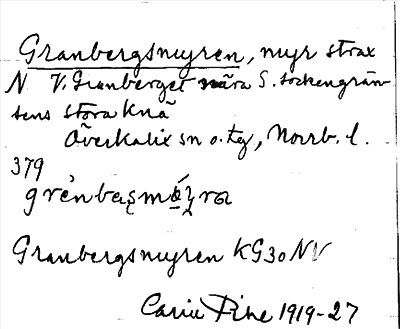 Granbergsmyren, myr strax
N V. Granberget nära S. sockengrän-
sens stora knä
Överkalix sn o. tg, Norrb. l.
379
Granbergsmyren KG30 NV
1919-27